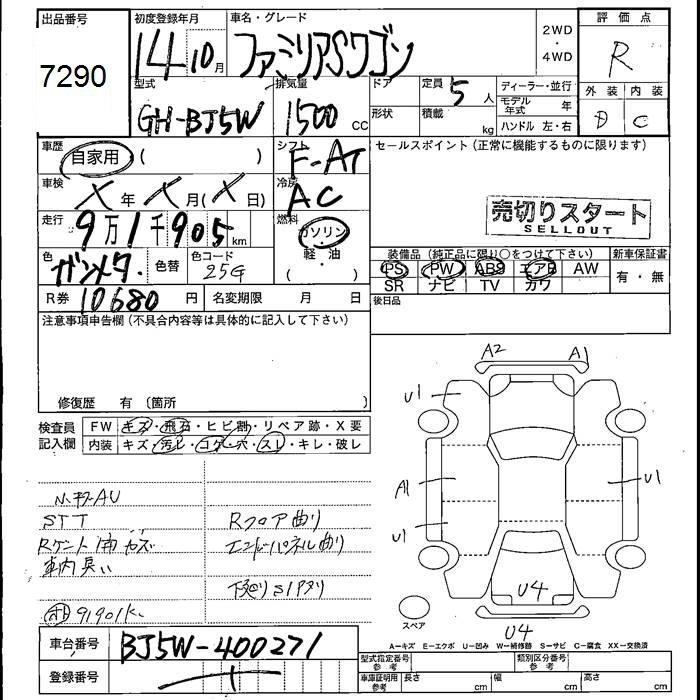 出品番号
7290
初度登録年月
14 10 月
車名・グレード
ファミリアSワゴン
2WD
・
4WD
評価点
R
外装 内装
D C
型式
GH-BJ5W
排気量
1500 CC
ドア
形状
定員 5 人
積載 kg
ディーラー・並行
モデル年式 年
ハンドル 左・右
車歴
自家用 ( )
シフト
F-AT
セールスポイント(正常に機能するものに限ります)
車検
X 年 X 月(X 日)
冷房
AC
売切りスタート
SELLOUT
走行
9万1千905 km
燃料
ガソリン
・
軽・油
色
ガンメタ.
色替
色コード
25G
装備品(純正品に限り○をつけて下さい)
新車保証書
PS PW ABS エアB AW
SR ナビ TV カワ
有・無
R券 10680 円
名変期限 月 日
後日品
注意事項申告欄(不具合内容等は具体的に記入して下さい)
修復歴 有 〔箇所 〕
検査員
記入欄
FW キズ・飛石・ヒビ割・リペア跡・X要
内装 キズ・汚レ・コゲ・穴・スレ・キレ・破レ
A2 A1
U1
A1 U1
U1
U4
U4
スペア
STT
Rフロア曲り
エンドパネル曲り
車内臭い
下廻りS1アリ
91901K
A=キズ E=エクボ U=凹み W=補修跡 S=サビ C=腐食 XX=交換済
車台番号 BJ5W-400271
登録番号
型式指定番号
参考
類別区分番号
参考
車庫証明用
参考
長さ cm 幅 cm 高さ cm